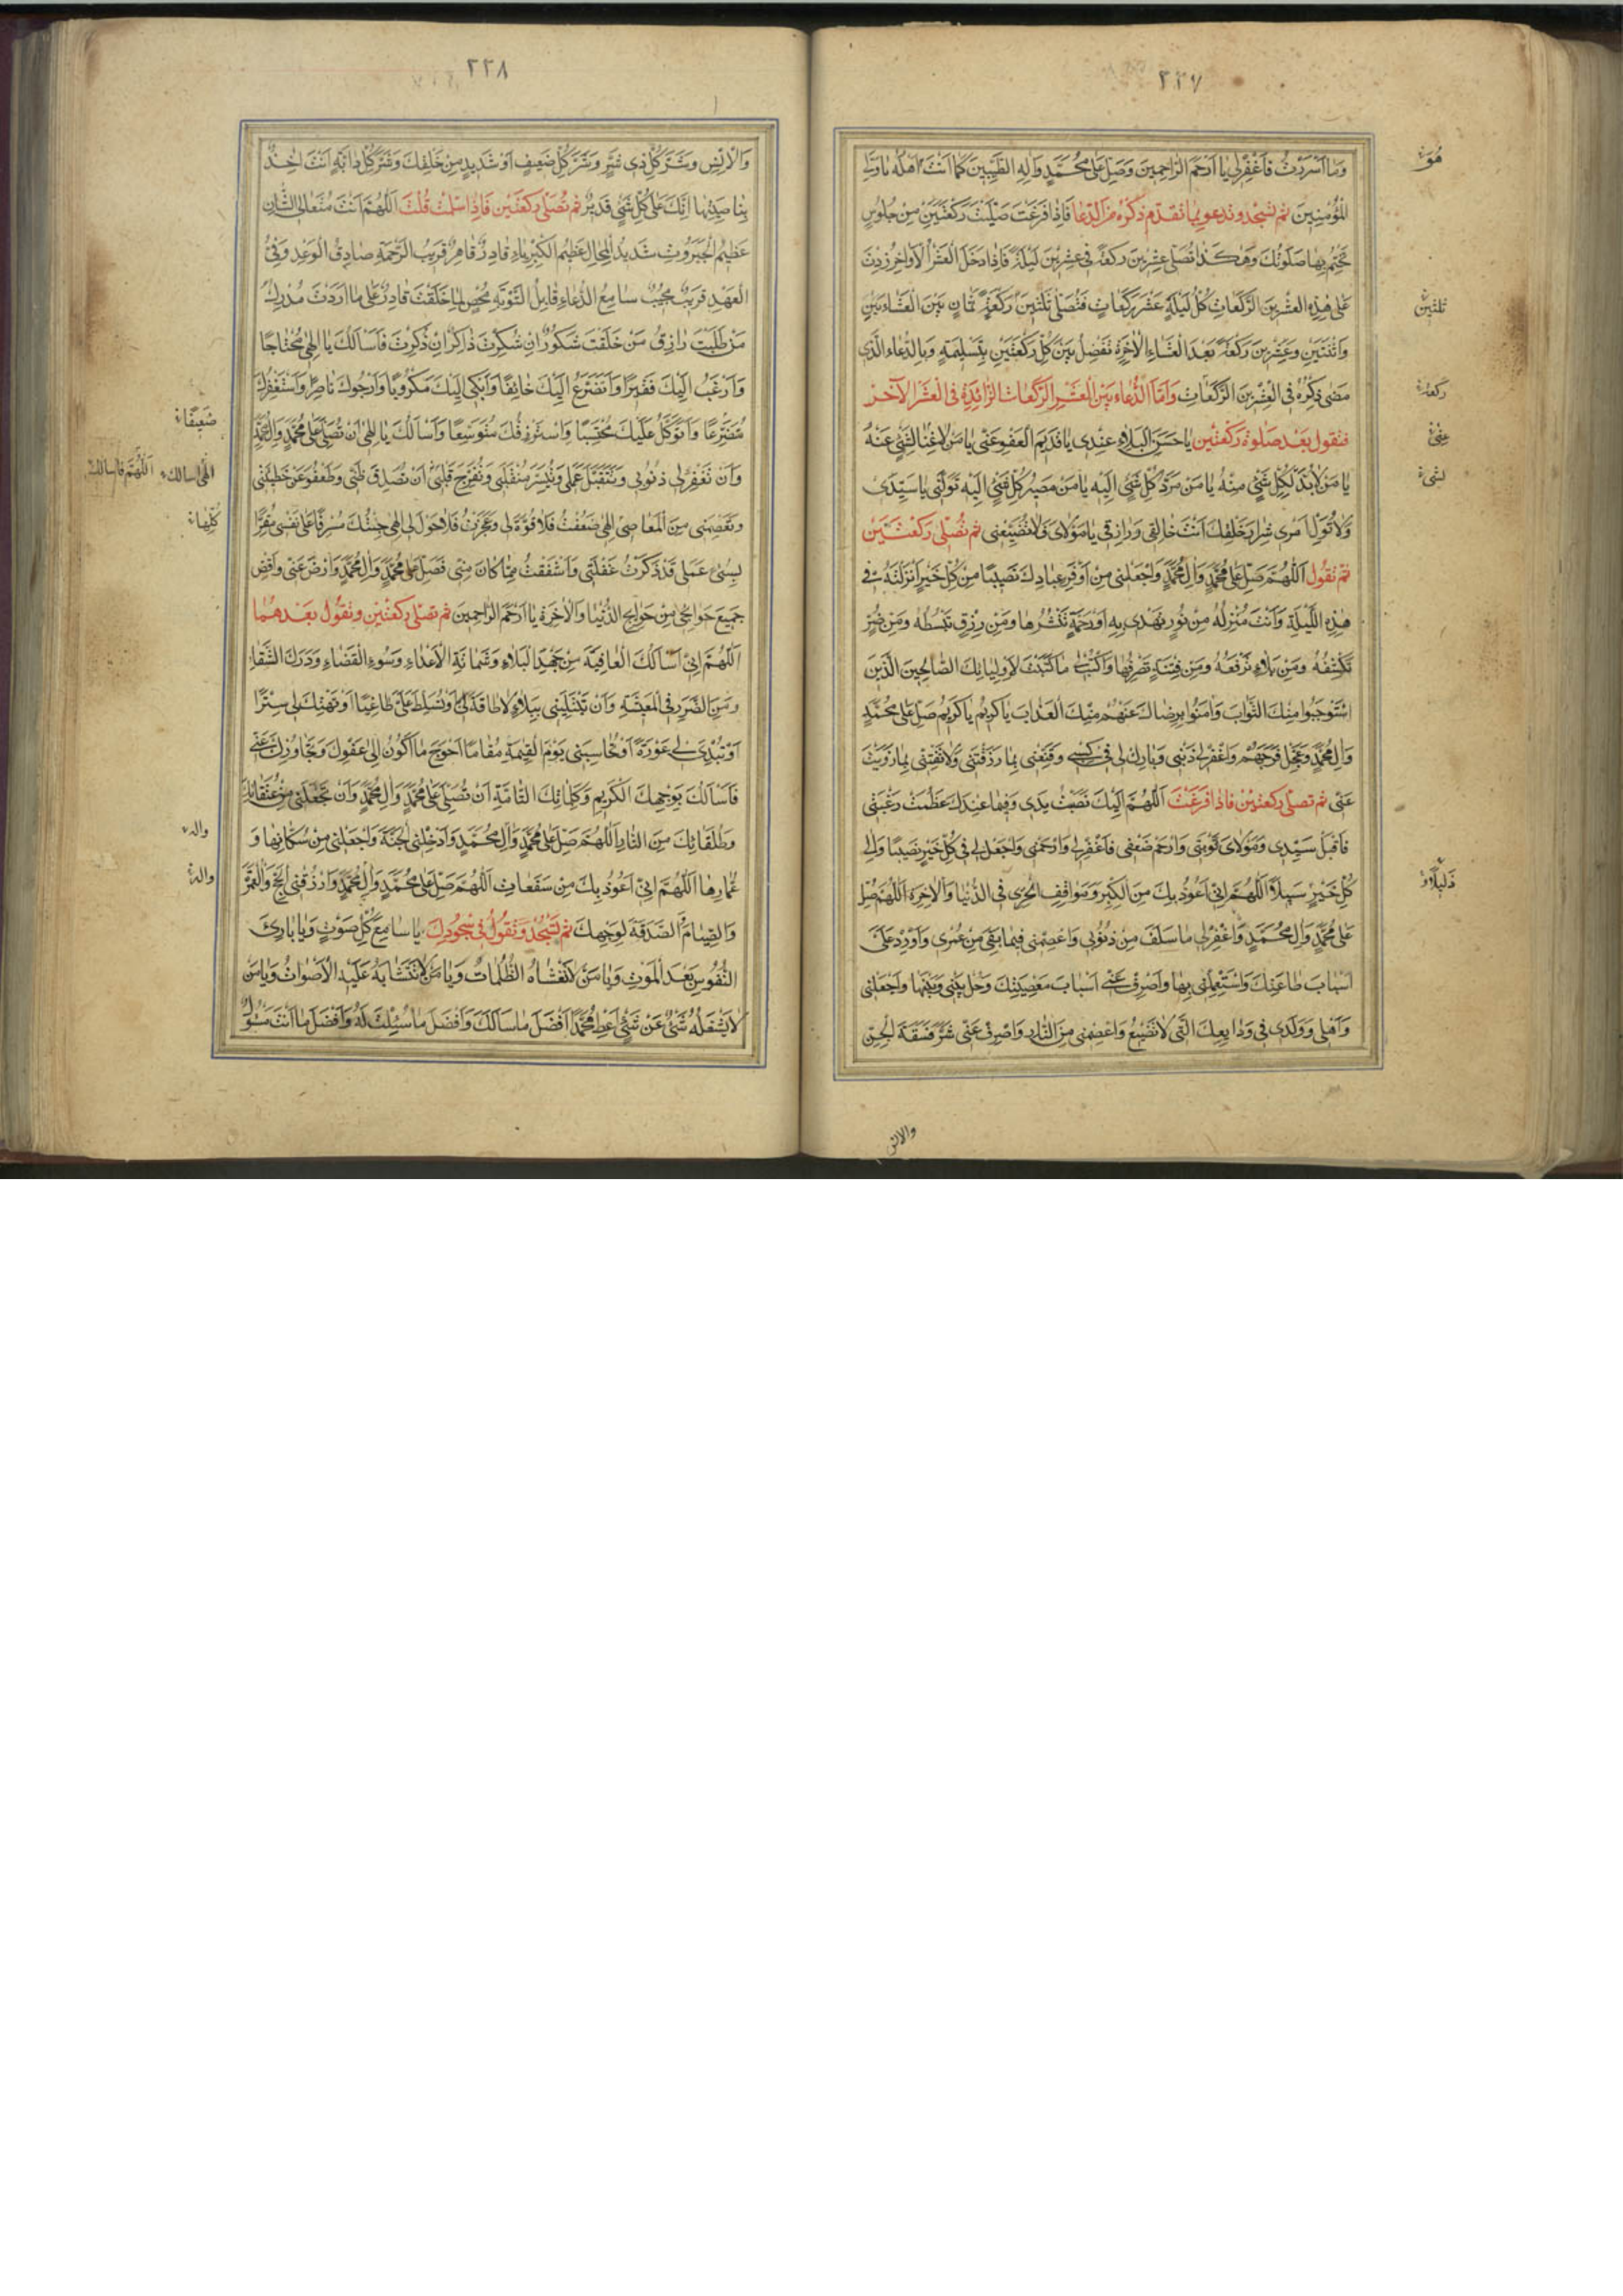 ٢٢٧
وَمَا اَسْرَرْتُ فَاغْفِرْلِي يَا اَرْحَمَ الرَّاحِمِينَ وَصَلِّ عَلٰى مُحَمَّدٍ وَآلِهِ الطَّيِّبِينَ كَمَا اَنْتَ اَهْلُهُ يَا وَلِيَّ
الْمُؤْمِنِينَ ثم تسجد وتدعو بما تقدّم ذكره من الدّعا فَاِذَا فَرَغْتَ صَلَّيْتَ رَكْعَتَيْنِ مِنْ جُلُوسٍ
تَخْتِمُ بِهَا صَلٰوتَكَ وَهٰكَذَا تُصَلِّي عِشْرِينَ رَكْعَةً فِي عِشْرِينَ لَيْلَةً فَاِذَا دَخَلَ الْعَشْرُ الْاَوَاخِرُ زِدْتَ
عَلٰى هٰذِهِ الْعِشْرِينَ الرَّكَعَاتِ كُلَّ لَيْلَةٍ عَشْرَ رَكَعَاتٍ فَتُصَلِّي ثَلٰثِينَ رَكْعَةً ثَمَانٍ بَيْنَ الْعَشَاءَيْنِ
وَاثْنَتَيْنِ وَعِشْرِينَ رَكْعَةً بَعْدَ الْعَشَاءِ الْاٰخِرَةِ تَفْصِلُ بَيْنَ كُلِّ رَكْعَتَيْنِ بِتَسْلِيمَةٍ وَبِالدُّعَاءِ الَّذِي
مَضٰى ذِكْرُهُ فِي الْعِشْرِينَ الرَّكَعَاتِ وَاَمَّا الدُّعَاءُ بَيْنَ الْعَشْرِ الرَّكَعَاتِ الزَّائِدَةِ فِي الْعَشْرِ الآخر
فتقول بَعْدَ صَلٰوةِ رَكْعَتَيْنِ يَا حَسَنَ الْبَلَاءِ عِنْدِي يَا قَدِيمَ الْعَفْوِ عَنِّي يَا مَنْ لَا غِنَا لِشَيْءٍ عَنْهُ
يَا مَنْ لَا بُدَّ لِكُلِّ شَيْءٍ مِنْهُ يَا مَنْ مَرَدُّ كُلِّ شَيْءٍ اِلَيْهِ يَا مَنْ مَصِيرُ كُلِّ شَيْءٍ اِلَيْهِ تَوَلَّنِي يَا سَيِّدِي
وَلَا تُوَلِّ اَمْرِي شِرَارَ خَلْقِكَ اَنْتَ خَالِقِي وَرَازِقِي يَا مَوْلَايَ فَلَا تُضَيِّعْنِي ثم تُصَلِّي رَكْعَتَيْنِ
ثمّ تَقُول اَللّٰهُمَّ صَلِّ عَلٰى مُحَمَّدٍ وَاٰلِ مُحَمَّدٍ وَاجْعَلْنِي مِنْ اَوْفَرِ عِبَادِكَ نَصِيبًا مِنْ كُلِّ خَيْرٍ اَنْزَلْتَهُ فِي
هٰذِهِ اللَّيْلَةِ وَاَنْتَ مُنْزِلُهُ مِنْ نُورٍ تَهْدِي بِهِ اَوْ رَحْمَةٍ تَنْشُرُهَا وَمِنْ رِزْقٍ تَبْسُطُهُ وَمِنْ ضُرٍّ
تَكْشِفُهُ وَمِنْ بَلَاءٍ تَرْفَعُهُ وَمِنْ فِتْنَةٍ تَصْرِفُهَا وَاكْتُبْ لِي مَا كَتَبْتَ لِاَوْلِيَائِكَ الصَّالِحِينَ الَّذِينَ
اسْتَوْجَبُوا مِنْكَ الثَّوَابَ وَاٰمَنُوا بِرِضَاكَ عَنْهُمْ مِنْكَ الْعَذَابَ يَا كَرِيمُ يَا كَرِيمُ صَلِّ عَلٰى مُحَمَّدٍ
وَاٰلِ مُحَمَّدٍ وَعَجِّلْ فَرَجَهُمْ وَاغْفِرْ لِي ذَنْبِي وَبَارِكْ لِي فِي كَسْبِي وَقَنِّعْنِي بِمَا رَزَقْتَنِي وَلَا تَفْتِنِّي بِمَا زَوَيْتَ
عَنِّي ثم تصلّي ركعتين فاذا فَرَغْتَ اَللّٰهُمَّ اِلَيْكَ نَصَبْتُ يَدِي وَفِيمَا عِنْدَكَ عَظُمَتْ رَغْبَتِي
فَاقْبَلْ سَيِّدِي وَمَوْلَايَ تَوْبَتِي وَارْحَمْ ضَعْفِي فَاغْفِرْ لِي وَارْحَمْنِي وَاجْعَلْ لِي فِي كُلِّ خَيْرٍ نَصِيبًا وَاِلٰى
كُلِّ خَيْرٍ سَبِيلًا اَللّٰهُمَّ اِنِّي اَعُوذُ بِكَ مِنَ الْكِبْرِ وَمَوَاقِفِ الْخِزْيِ فِي الدُّنْيَا وَالْاٰخِرَةِ اَللّٰهُمَّ صَلِّ
عَلٰى مُحَمَّدٍ وَاٰلِ مُحَمَّدٍ وَاغْفِرْ لِي مَا سَلَفَ مِنْ ذُنُوبِي وَاعْصِمْنِي فِيمَا بَقِيَ مِنْ عُمْرِي وَاَوْرِدْ عَلَيَّ
اَسْبَابَ طَاعَتِكَ وَاسْتَعْمِلْنِي بِهَا وَاصْرِفْ عَنِّي اَسْبَابَ مَعْصِيَتِكَ وَحُلْ بَيْنِي وَبَيْنَهَا وَاجْعَلْنِي
وَاَهْلِي وَوَلَدِي فِي وَدَايِعِكَ الَّتِي لَا تَضِيعُ وَاعْصِمْنِي مِنَ النَّارِ وَاصْرِفْ عَنِّي شَرَّ فَسَقَةِ الْجِنِّ
والانس
ثلثين
ركعة
٢٢٨
وَالْاِنْسِ وَشَرَّ كُلِّ ذِي شَرٍّ وَشَرَّ كُلِّ ضَعِيفٍ اَوْ شَدِيدٍ مِنْ خَلْقِكَ وَشَرَّ كُلِّ دَابَّةٍ اَنْتَ اٰخِذٌ
بِنَاصِيَتِهَا اِنَّكَ عَلٰى كُلِّ شَيْءٍ قَدِيرٌ ثم تُصَلِّي رَكْعَتَيْنِ فَاِذَا سَلَّمْتَ قُلْتَ اَللّٰهُمَّ اَنْتَ مُتَعَالِي الشَّانِ
عَظِيمُ الْجَبَرُوتِ شَدِيدُ الْمِحَالِ عَظِيمُ الْكِبْرِيَاءِ قَادِرٌ قَاهِرٌ قَرِيبُ الرَّحْمَةِ صَادِقُ الْوَعْدِ وَفِيُّ
الْعَهْدِ قَرِيبٌ مُجِيبٌ سَامِعُ الدُّعَاءِ قَابِلُ التَّوْبَةِ مُحْصٍ لِمَا خَلَقْتَ قَادِرٌ عَلٰى مَا اَرَدْتَ مُدْرِكُ
مَنْ طَلَبْتَ رَازِقُ مَنْ خَلَقْتَ شَكُورٌ اِنْ شُكِرْتَ ذَاكِرٌ اِنْ ذُكِرْتَ فَاَسْاَلُكَ يَا اِلٰهِي مُحْتَاجًا
وَاَرْغَبُ اِلَيْكَ فَقِيرًا وَاَتَضَرَّعُ اِلَيْكَ خَائِفًا وَاَبْكِي اِلَيْكَ مَكْرُوبًا وَاَرْجُوكَ نَاصِرًا وَاَسْتَغْفِرُكَ
مُتَضَرِّعًا وَاَتَوَكَّلُ عَلَيْكَ مُحْتَسِبًا وَاَسْتَرْزِقُكَ مُتَوَسِّعًا وَاَسْاَلُكَ يَا اِلٰهِي اَنْ تُصَلِّيَ عَلٰى مُحَمَّدٍ وَاٰلِ مُحَمَّدٍ
وَاَنْ تَغْفِرَ لِي ذُنُوبِي وَتَتَقَبَّلَ عَمَلِي وَتُيَسِّرَ مُنْقَلَبِي وَتُفَرِّجَ قَلْبِي اَنْ تُصَدِّقَ ظَنِّي وَتَعْفُوَ عَنْ خَطِيئَتِي
وَتَعْصِمَنِي مِنَ الْمَعَاصِي اِلٰهِي ضَعُفْتُ فَلَا قُوَّةَ لِي وَعَجَزْتُ فَلَا حَوْلَ لِي اِلٰهِي جِئْتُكَ مُسْرِفًا عَلٰى نَفْسِي مُقِرًّا
بِسُوْءِ عَمَلِي قَدْ ذَكَرْتُ غَفْلَتِي وَاَشْفَقْتُ مِمَّا كَانَ مِنِّي فَصَلِّ عَلٰى مُحَمَّدٍ وَاٰلِ مُحَمَّدٍ وَارْضَ عَنِّي وَاقْضِ
جَمِيعَ حَوَائِجِي مِنْ حَوَائِجِ الدُّنْيَا وَالْاٰخِرَةِ يَا اَرْحَمَ الرَّاحِمِينَ ثم تصلّي ركعتين وتقُول بَعْدَهُمَا
اَللّٰهُمَّ اِنِّي اَسْاَلُكَ الْعَافِيَةَ مِنْ جَهْدِ الْبَلَاءِ وَشَمَاتَةِ الْاَعْدَاءِ وَسُوءِ الْقَضَاءِ وَدَرَكِ الشَّقَاءِ
وَمِنَ الضَّرَرِ فِي الْمَعِيشَةِ وَاَنْ تَبْتَلِيَنِي بِبَلَاءٍ لَا طَاقَةَ لِي بِهِ اَوْ تُسَلِّطَ عَلَيَّ طَاغِيًا اَوْ تَهْتِكَ لِي سِتْرًا
اَوْ تُبْدِيَ لِي عَوْرَةً اَوْ تُحَاسِبَنِي يَوْمَ الْقِيٰمَةِ مُقَاصًّا اَحْوَجَ مَا اَكُونُ اِلٰى عَفْوِكَ وَتَجَاوُزِكَ عَنِّي
فَاَسْاَلُكَ بِوَجْهِكَ الْكَرِيمِ وَكَلِمَاتِكَ التَّامَّةِ اَنْ تُصَلِّيَ عَلٰى مُحَمَّدٍ وَاٰلِ مُحَمَّدٍ وَاَنْ تَجْعَلَنِي مِنْ عُتَقَائِكَ
وَطُلَقَائِكَ مِنَ النَّارِ اَللّٰهُمَّ صَلِّ عَلٰى مُحَمَّدٍ وَاٰلِ مُحَمَّدٍ وَاَدْخِلْنِي الْجَنَّةَ وَاجْعَلْنِي مِنْ سُكَّانِهَا وَ
عُمَّارِهَا اَللّٰهُمَّ اِنِّي اَعُوذُ بِكَ مِنْ سَفَعَاتِ اَللّٰهُمَّ صَلِّ عَلٰى مُحَمَّدٍ وَاٰلِ مُحَمَّدٍ وَارْزُقْنِي الْحَجَّ وَالْعُمْرَةَ
وَالصِّيَامَ وَالصَّدَقَةَ لِوَجْهِكَ ثم تَسْجُدُ وَتَقُولُ فِي سُجُودِكَ يَا سَامِعَ كُلِّ صَوْتٍ وَيَا بَارِئَ
النُّفُوسِ بَعْدَ الْمَوْتِ وَيَا مَنْ لَا تَغْشَاهُ الظُّلُمَاتُ وَيَا مَنْ لَا تَتَشَابَهُ عَلَيْهِ الْاَصْوَاتُ وَيَا مَنْ
لَا يَشْغَلُهُ شَيْءٌ عَنْ شَيْءٍ اَعْطِ مُحَمَّدًا اَفْضَلَ مَا سَاَلَكَ وَاَفْضَلَ مَا سُئِلْتَ لَهُ وَاَفْضَلَ مَا اَنْتَ مَسْؤُلٌ
ضَعِيفًا
اللّٰهم فاسالك
الٰهي اسالك
كلّها